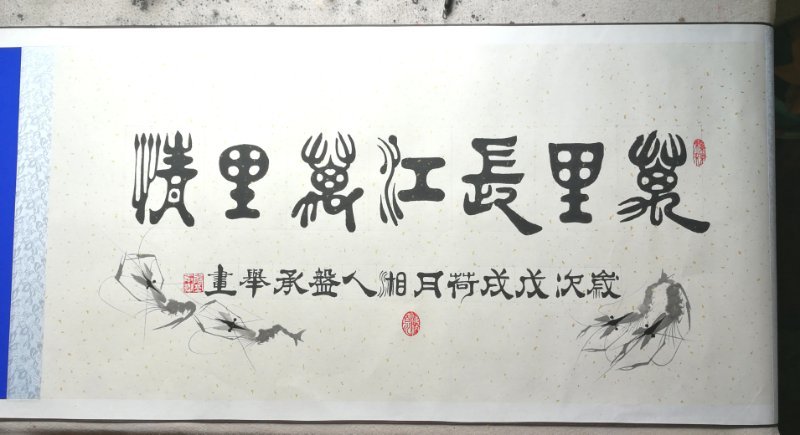 萬里長江萬里情
歲次戊戌荷月湘人盤承舉畫